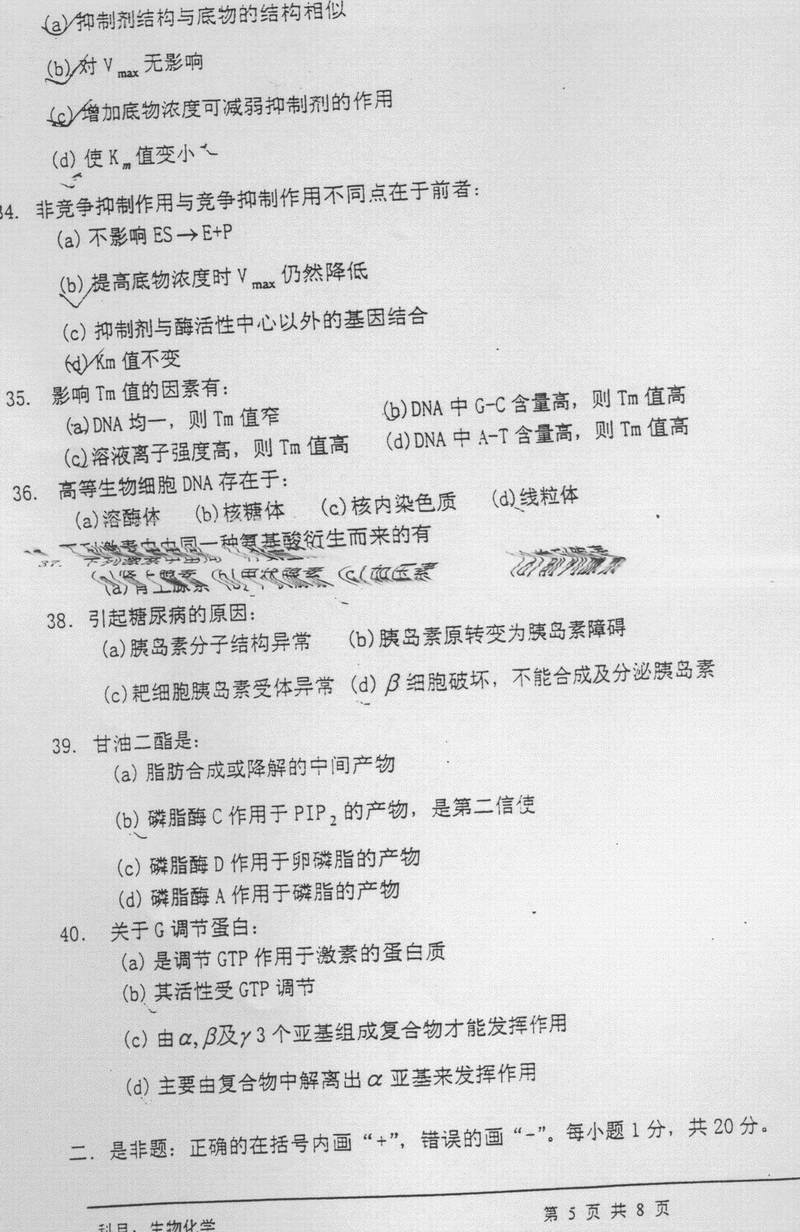 (a) 抑制剂结构与底物的结构相似
(b) 对 V max 无影响
(c) 增加底物浓度可减弱抑制剂的作用
(d) 使 K m 值变小
34. 非竞争抑制作用与竞争抑制作用不同点在于前者：
(a) 不影响 ES→E+P
(b) 提高底物浓度时 V max 仍然降低
(c) 抑制剂与酶活性中心以外的基因结合
(d) Km 值不变
35. 影响 Tm 值的因素有：
(a) DNA 均一，则 Tm 值窄 (b) DNA 中 G-C 含量高，则 Tm 值高
(c) 溶液离子强度高，则 Tm 值高 (d) DNA 中 A-T 含量高，则 Tm 值高
36. 高等生物细胞 DNA 存在于：
(a) 溶酶体 (b) 核糖体 (c) 核内染色质 (d) 线粒体
37. 下列激素中由同一种氨基酸衍生而来的有
(a) 肾上腺素 (b) 甲状腺素 (c) 加压素 (d)
38. 引起糖尿病的原因：
(a) 胰岛素分子结构异常 (b) 胰岛素原转变为胰岛素障碍
(c) 耙细胞胰岛素受体异常 (d) β 细胞破坏，不能合成及分泌胰岛素
39. 甘油二酯是：
(a) 脂肪合成或降解的中间产物
(b) 磷脂酶 C 作用于 PIP2 的产物，是第二信使
(c) 磷脂酶 D 作用于卵磷脂的产物
(d) 磷脂酶 A 作用于磷脂的产物
40. 关于 G 调节蛋白：
(a) 是调节 GTP 作用于激素的蛋白质
(b) 其活性受 GTP 调节
(c) 由 α, β及γ 3 个亚基组成复合物才能发挥作用
(d) 主要由复合物中解离出 α 亚基来发挥作用
二. 是非题：正确的在括号内画“+”，错误的画“-”。每小题 1 分，共 20 分。
第 5 页 共 8 页
科目：生物化学